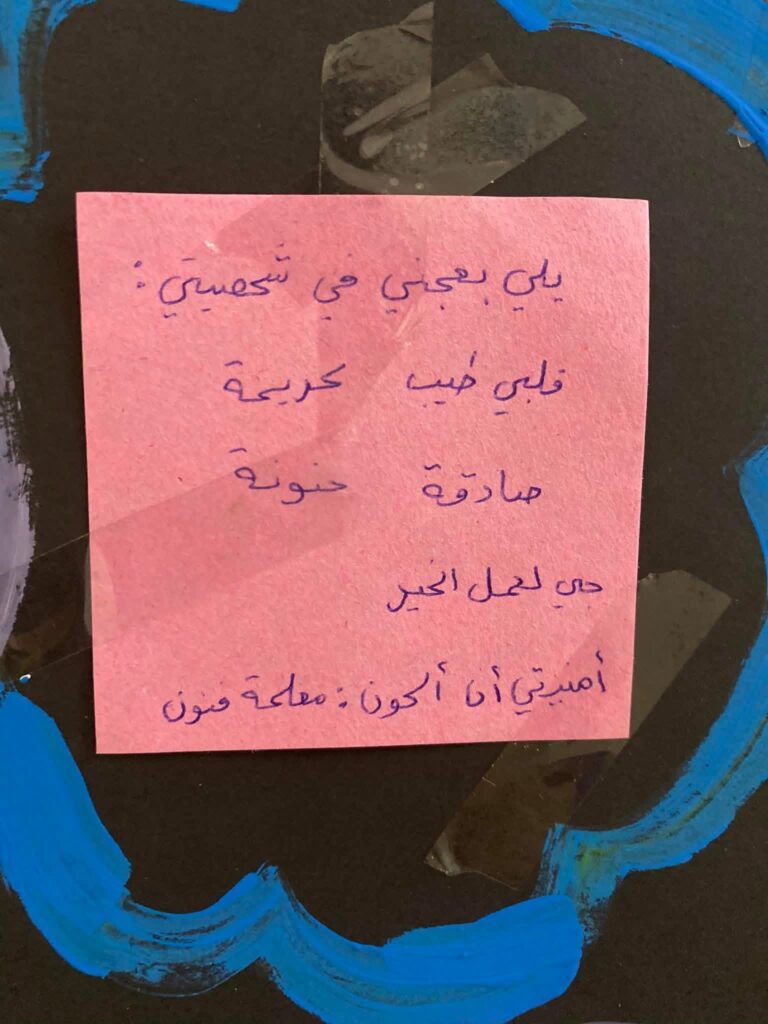 يلي بعجبني في شخصيتي :
قلبي طيب كريمة
صادقة حنونة
حبي لعمل الخير
أمنيتي أن أكون : معلمة فنون